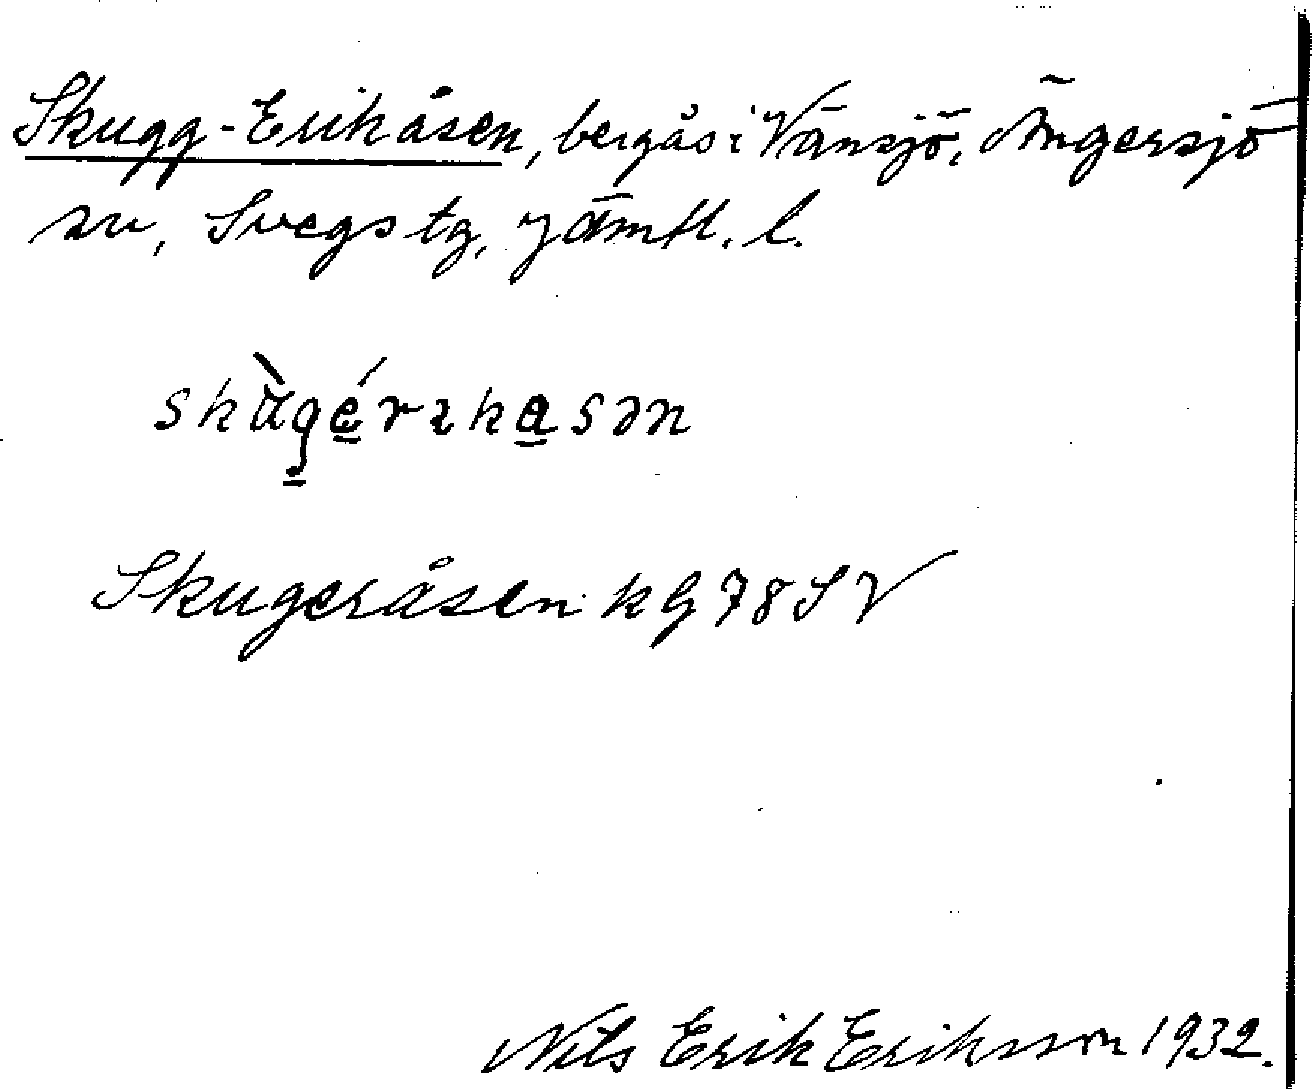 Skugg-Erikåsen, bergås i Vänsjö, Ängersjö
sn, Svegs tg, Jämtl. l.
Skugeråsen kG 78 SV
Nils Erik Eriksson 1932.